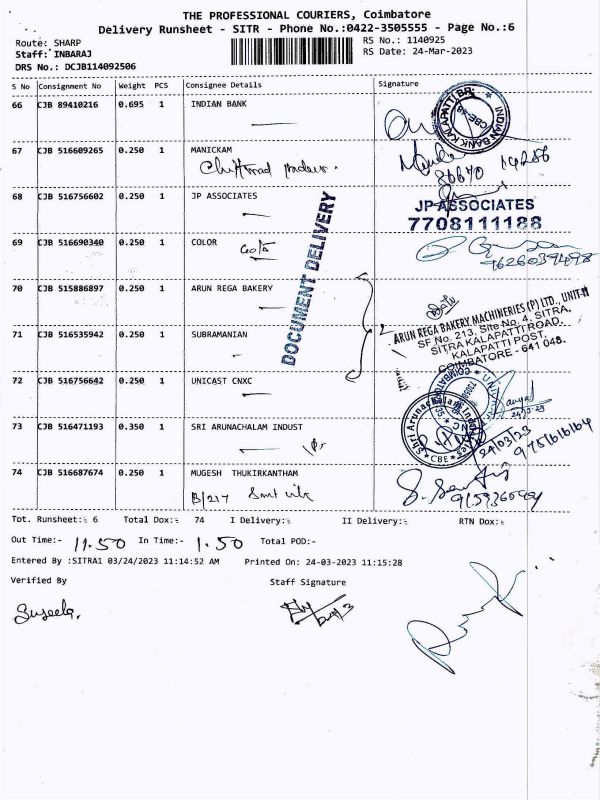 THE PROFESSIONAL COURIERS, Coimbatore
Delivery Runsheet - SITR - Phone No.:0422-3505555 - Page No.:6
Route: SHARP
RS No.: 1140925
Staff: INBARAJ
RS Date: 24-Mar-2023
DRS No.: DCJB114092506
S No Consignment No Weight PCS Consignee Details Signature
66 CJB 89410216 0.695 1 INDIAN BANK
INDIAN BANK KALAPATTI BR.
CBE-48
67 CJB 516609265 0.250 1 MANICKAM
68 CJB 516756602 0.250 1 JP ASSOCIATES
JP ASSOCIATES
7708111188
DOCUMENT DELIVERY
69 CJB 516690340 0.250 1 COLOR
70 CJB 515886897 0.250 1 ARUN REGA BAKERY
ARUN REGA BAKERY MACHINERIES (P) LTD., UNIT-II
SF No. 213, Site No. 4, SITRA,
SITRA KALAPATTI ROAD,
KALAPATTI POST,
COIMBATORE - 641 048.
71 CJB 516535942 0.250 1 SUBRAMANIAN
72 CJB 516756642 0.250 1 UNICAST CNXC
73 CJB 516471193 0.350 1 SRI ARUNACHALAM INDUST
CBE
24/03/23
74 CJB 516687674 0.250 1 MUGESH THUKIRKANTHAM
B/217
Tot. Runsheet:- 6 Total Dox:- 74 I Delivery:- II Delivery:- RTN Dox:-
Out Time:- 11.50 In Time:- 1.50 Total POD:-
Entered By :SITRA1 03/24/2023 11:14:52 AM Printed On: 24-03-2023 11:15:28
Verified By Staff Signature
Suseela.